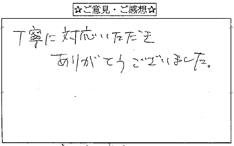 ☆ご意見・ご感想☆
丁寧に対応いただき
ありがとうございました。